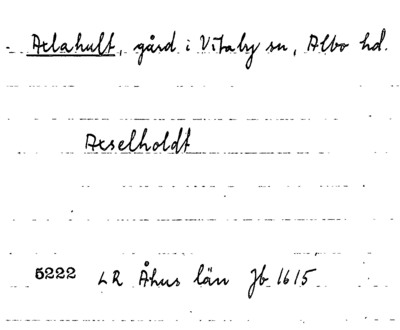 Axlahult, gård i Vitaby sn, Albo hd.
Axselholdt
5222 LR Åhus län Jb 1615